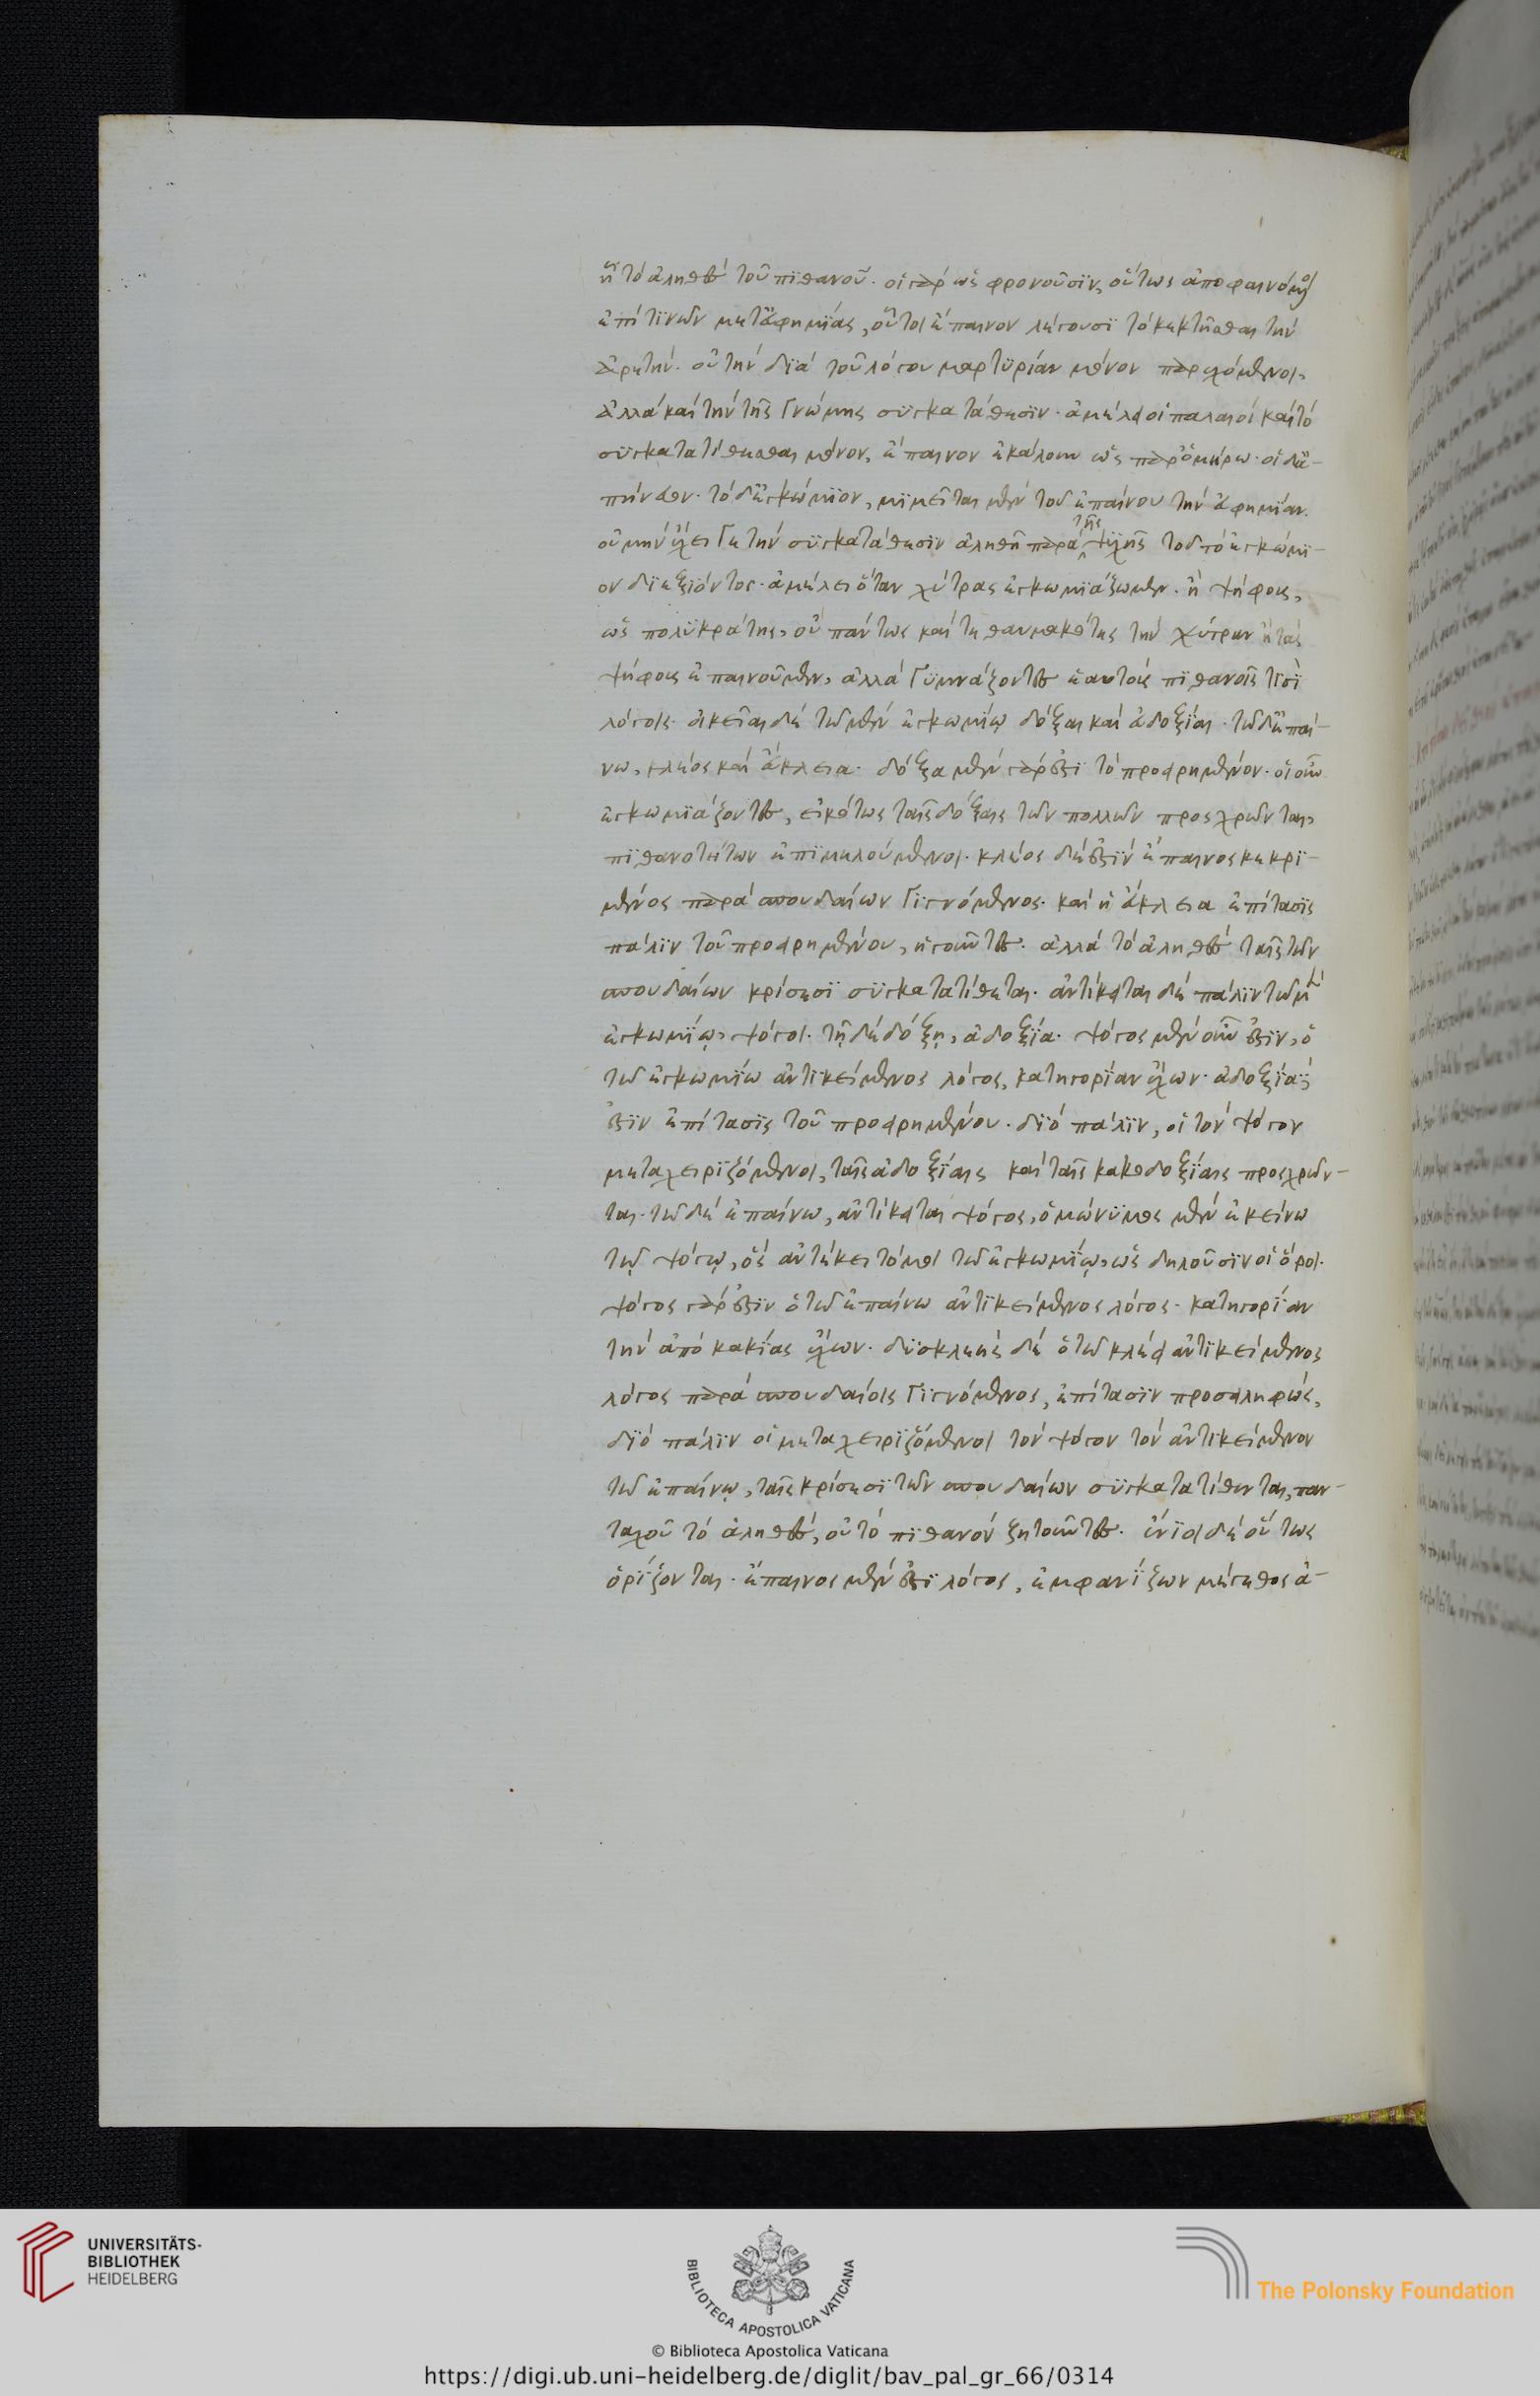 ἢ τὸ ἀληθὲς τοῦ πιθανοῦ. οἱ γὰρ ὡς φρονοῦσιν, οὕτως ἀποφαινόμενοι
ἐπί τινων μετ' εὐφημίας, οὗτοι ἔπαινον λέγουσι τὸ κεκτῆσθαι τὴν
ἀρετήν. οὐ τὴν διὰ τοῦ λόγου μαρτυρίαν μόνον παρεχόμενοι,
ἀλλὰ καὶ τὴν τῆς γνώμης συγκατάθεσιν. ἀμέλει οἱ παλαιοὶ καὶ τὸ
συγκατατίθεσθαι μόνον, ἔπαινον ἐκάλουν ὡς παρ' ὁμήρω. οἱ δ' ἐ-
πήνεον. τὸ δ' ἐγκώμιον, μιμεῖται μὲν τοῦ ἐπαίνου τὴν εὐφημίαν.
οὐ μὴν ἔχει γε τὴν συγκατάθεσιν ἀληθῆ παρὰ τῆς ψυχῆς τοῦ τὸ ἐγκώμι-
ον διεξιόντος. ἀμέλει ὅταν χύτρας ἐγκωμιάζωμεν. ἢ ψήφους,
ὡς πολυκράτης, οὐ πάντως καὶ τεθαυμακότες τὴν χύτραν ἢ τὰς
ψήφους ἐπαινοῦμεν, ἀλλὰ γυμνάζοντες ἑαυτοὺς πιθανοῖς τισὶ
λόγοις. οἰκεῖται δὲ τῶ μὲν ἐγκωμίῳ δόξαι καὶ ἀδοξίαι. τῶ δ' ἐπαί-
νω, κλέος καὶ ἄκλεια. δόξα μὲν γάρ ἐστι τὸ προειρημένον. οἱ οὖν
ἐγκωμιάζοντες, εἰκότως ταῖς δόξαις τῶν πολλῶν προσχρῶνται,
πιθανοτήτων ἐπιμελούμενοι. κλέος δέ ἐστιν ἔπαινος κεκρι-
μένος παρὰ σπουδαίων γιγνόμενος. καὶ ἡ ἄκλεια ἐπίτασις
πάλιν τοῦ προειρημένου, ἡγοῦντες. ἀλλὰ τὸ ἀληθὲς ταῖς τῶν
σπουδαίων κρίσεσι συγκατατίθεται. ἀντίκειται δὲ πάλιν τῶ μὲν
ἐγκωμίῳ, ψόγοι. τῇ δὲ δόξῃ, ἀδοξία. ψόγος μὲν οὖν ἐστιν, ὁ
τῶ ἐγκωμίω ἀντικείμενος λόγος, κατηγορίαν ἔχων. ἀδοξία δ'
ἐστιν ἐπίτασις τοῦ προειρημένου. διὸ πάλιν, οἱ τὸν ψόγον
μεταχειριζόμενοι, ταῖς ἀδοξίαις καὶ ταῖς κακοδοξίαις προσχρῶν-
ται. τῶ δὲ ἐπαίνω, ἀντίκειται ψόγος, ὁμώνυμος μὲν ἐκείνω
τῷ ψόγῳ, ὃς ἀντέκειτό μοι τῶ ἐγκωμίῳ, ὡς δηλοῦσιν οἱ ὅροι.
ψόγος γάρ ἐστιν ὁ τῶ ἐπαίνω ἀντικείμενος λόγος. κατηγορίαν
τὴν ἀπὸ κακίας ἔχων. δυσκλεὴς δὲ ὁ τῶ κλέει ἀντικείμενος
λόγος παρὰ σπουδαίοις γιγνόμενος, ἐπίτασιν προσειληφώς,
διὸ πάλιν οἱ μεταχειριζόμενοι τὸν ψόγον τὸν ἀντικείμενον
τῶ ἐπαίνῳ, ταῖς κρίσεσι τῶν σπουδαίων συγκατατίθενται, παν-
ταχοῦ τὸ ἀληθὲς, οὐ τὸ πιθανὸν ζητοῦντες. ἔνιοι δὲ οὕτως
ὁρίζονται. ἔπαινος μέν ἐστι λόγος, ἐμφανίζων μέγεθος ἀ-
UNIVERSITÄTS-
BIBLIOTHEK
HEIDELBERG
BIBLIOTECA APOSTOLICA VATICANA
The Polonsky Foundation
© Biblioteca Apostolica Vaticana
https://digi.ub.uni-heidelberg.de/diglit/bav_pal_gr_66/0314